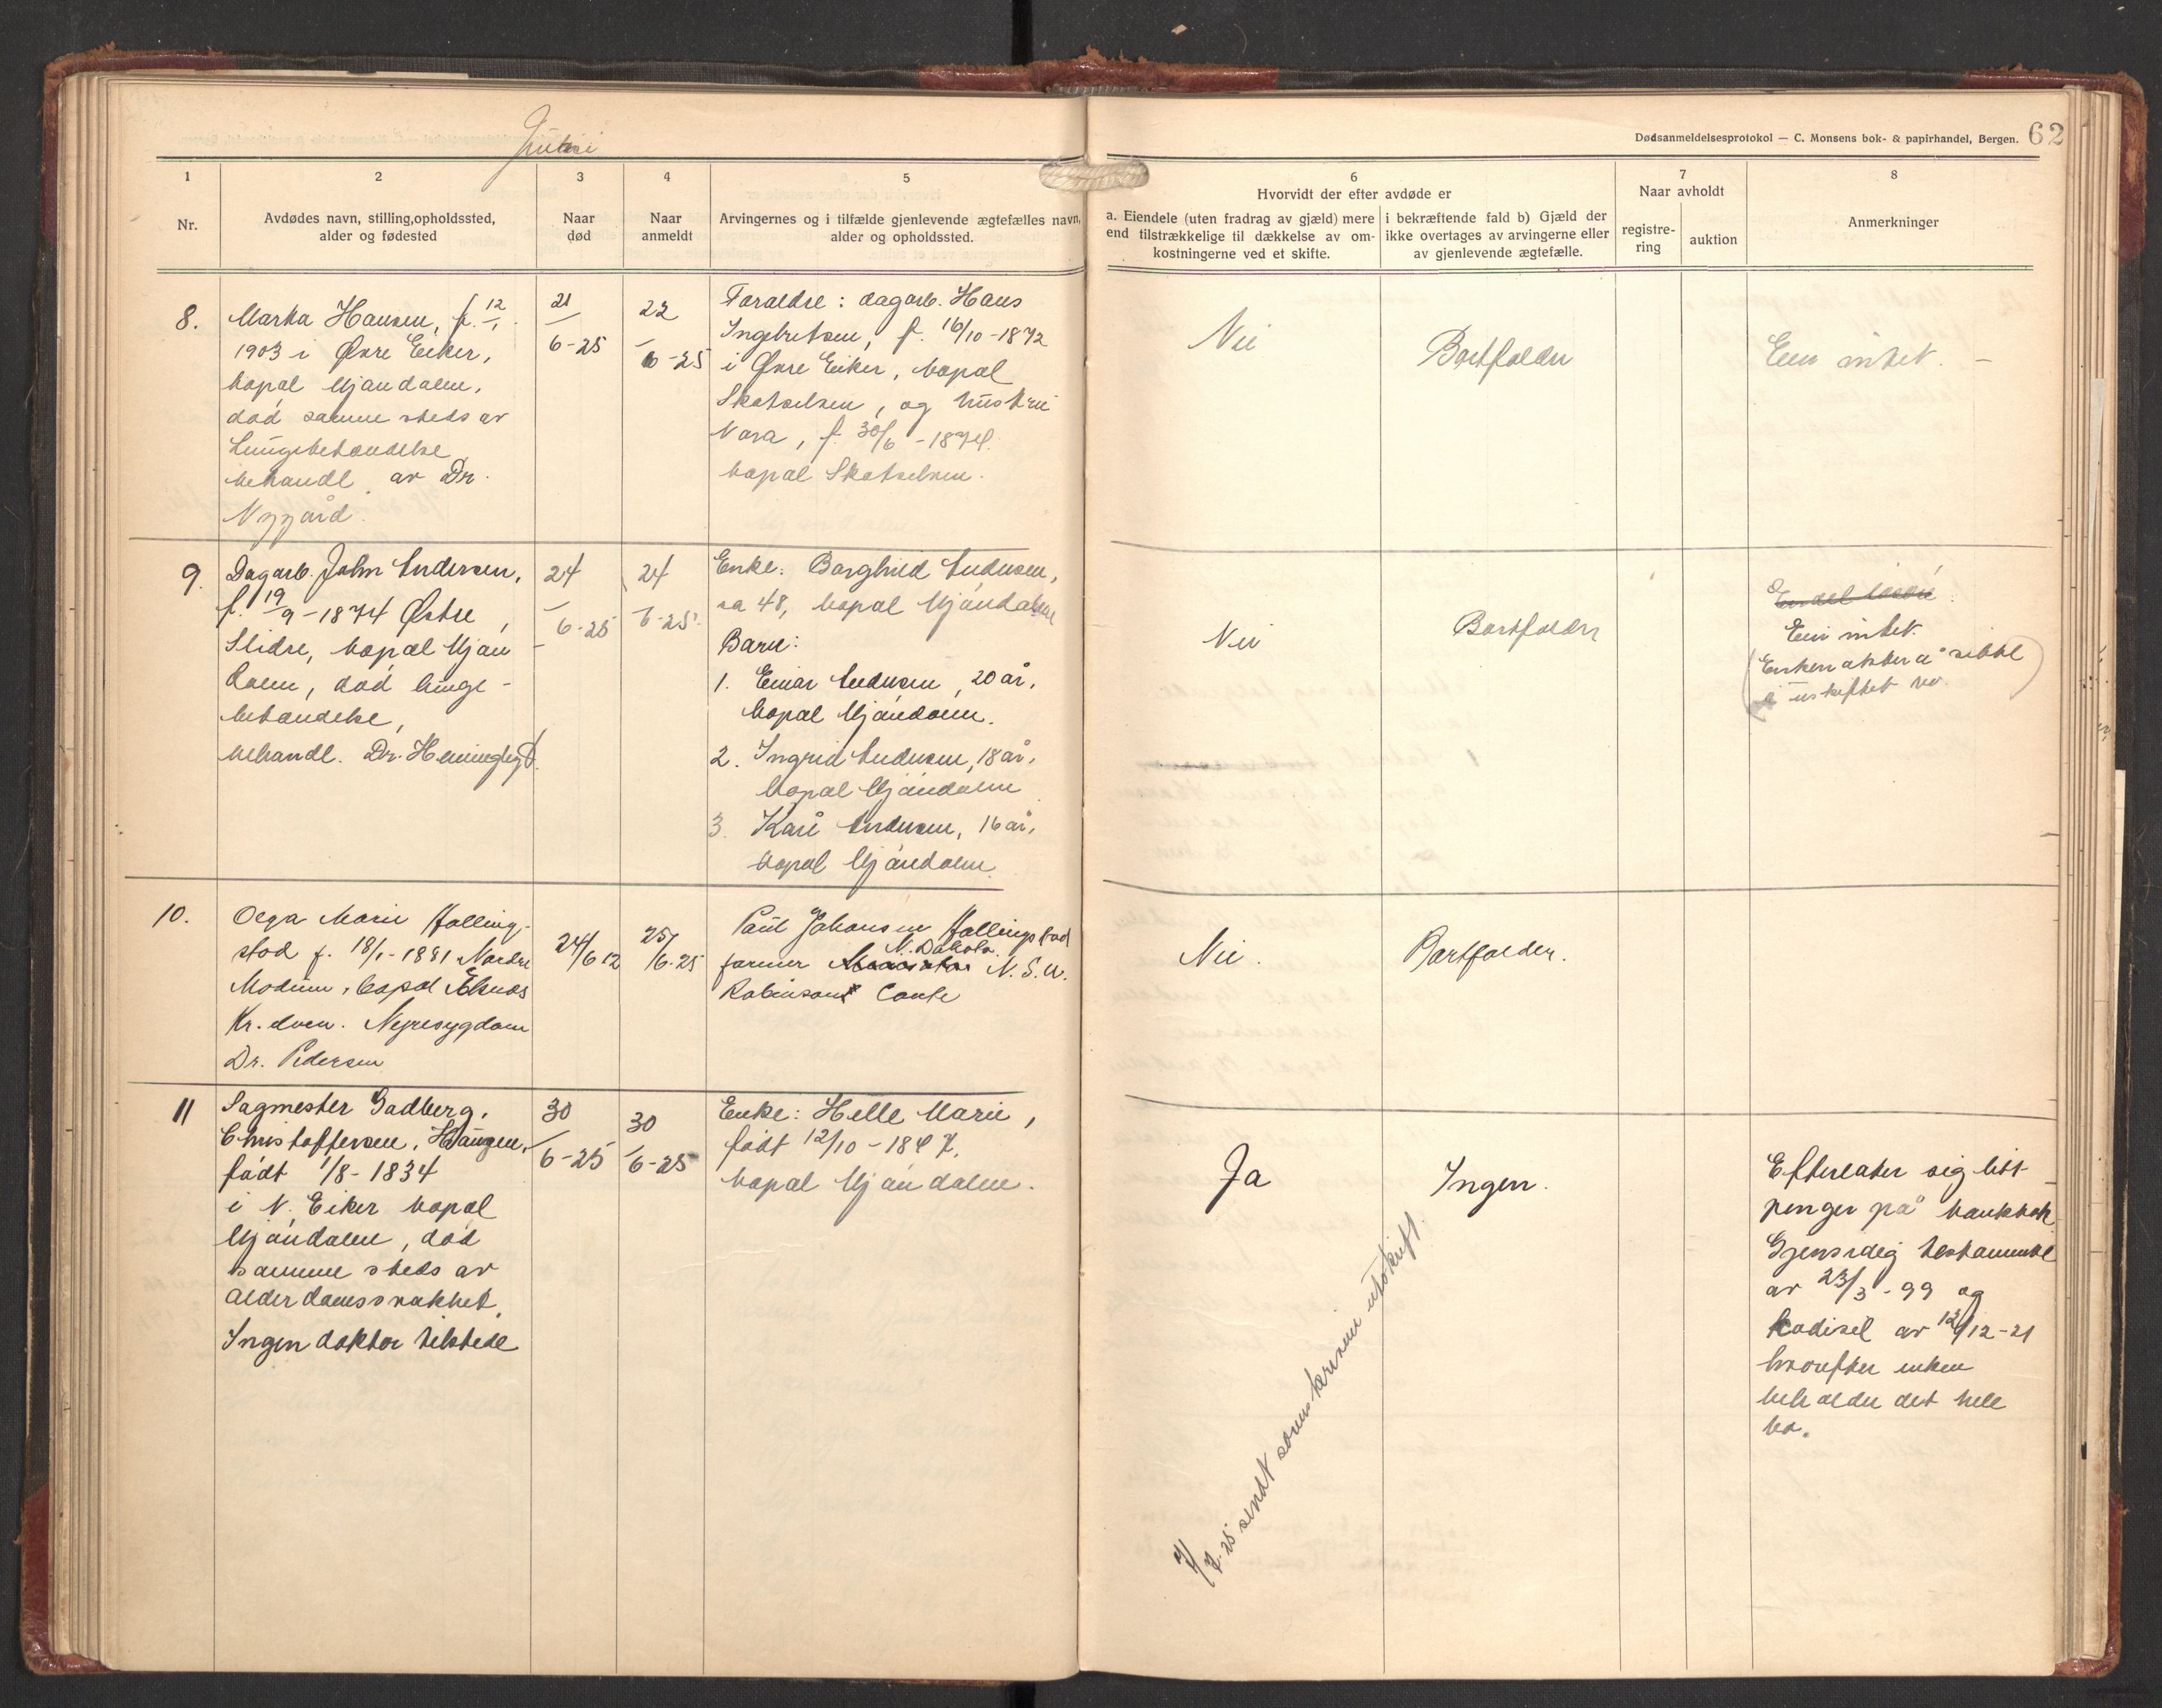 Juni
Dødsanmeldelsesprotokol — C. Monsens bok- & papirhandel, Bergen. 62
1
Nr.
2
Avdødes navn, stilling, opholdssted,
alder og fødested
3
Naar
død
4
Naar
anmeldt
5
Arvingernes og i tilfælde gjenlevende ægtefælles navn,
alder og opholdssted.
6
Hvorvidt der efter avdøde er
a. Eiendele (uten fradrag av gjæld) mere
end tilstrækkelige til dækkelse av om-
kostningerne ved et skifte.
i bekræftende fald b) Gjæld der
ikke overtages av arvingerne eller
av gjenlevende ægtefælle.
7
Naar avholdt
registre-
ring
auktion
8
Anmerkninger
8.
Marka Hansen, f. 12/1
1903 i Øvre Eiker,
bopæl Mjøndalen,
død samme steds av
Lungebetændelse
behandl. av Dr.
Nygård.
21/6-25
22/6-25
Foraeldre: dagarb. Hans
Ingebretsen, f. 16/10-1872
i Øvre Eiker, bopæl
Skotselven, og hustru
Nora, f. 30/6-1874.
bopæl Skotselven.
Nei
Bortfalder
Eier intet. —
9.
Dagarb. John Andersen,
f. 19/9-1874 Østre
Slidre, bopæl Mjøn
dalen, død lunge-
betændelse,
behandl. Dr.
24/6-25
24/6-25
Enke: Borghild Andersen,
ca 48, bopæl Mjøndalen
Barn:
1. Einar Andersen, 20 år,
bopæl Mjøndalen.
2. Ingrid Andersen, 18 år,
bopæl Mjøndalen
3. Kari Andersen, 16 år,
bopæl Mjøndalen.
Nei
Bortfalder
Eier intet.
(Enken akter å sitte
i uskiftet bo.)
10.
Olga Marie Holling-
stod f. 18/1-1881 Nordre
Modum, bopæl Eknes
Kr. dven. Nyresygdom
Dr. Pedersen
24/6 12
25/6-25
Paul Johansen Hollingstad
farmer N. Dakota N.S.A.
Robinson
Nei.
Bortfalder.
11
Sagmester Gudberg.
Christoffersen, Haugen,
født 1/8-1834
i N. Eiker bopæl
Mjøndalen, død
samme steds av
alderdomssvakhet.
Ingen doktor tilstede
30/6-25
30/6-25
Enke: Helle Marie,
født 12/10-1847.
bopæl Mjøndalen.
Ja
Ingen.
7/7-25 sendt sorenskriveren utskrift.
Efterlater sig litt
penger på bankbok
Gjensidig testamente
av 23/3-99 og
kodisil av 12/12-21
hvorefter enken
beholder det hele
bo.